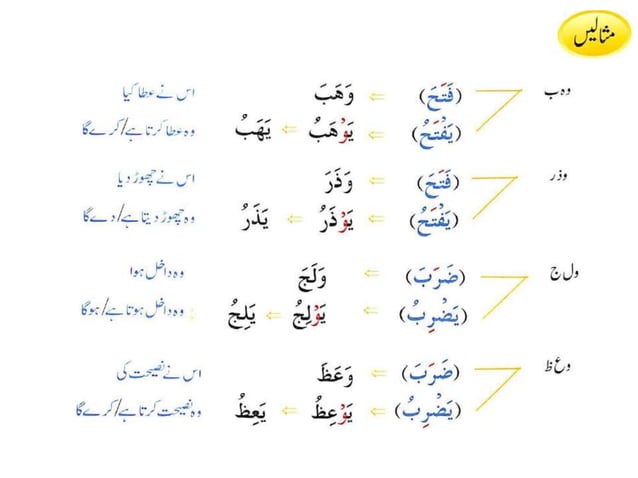 مثالیں
و ہ ب (فَتَحَ) ⇐ وَهَبَ اس نے عطا کیا
(يَفْتَحُ) ⇐ يَوْهَبُ ⇐ يَهَبُ وہ عطا کرتا ہے/کرے گا
و ذ ر (فَتَحَ) ⇐ وَذَرَ اس نے چھوڑ دیا
(يَفْتَحُ) ⇐ يَوْذَرُ ⇐ يَذَرُ وہ چھوڑ دیتا ہے/دے گا
و ل ج (ضَرَبَ) ⇐ وَلَجَ وہ داخل ہوا
(يَضْرِبُ) ⇐ يَوْلِجُ ⇐ يَلِجُ وہ داخل ہوتا ہے/ہوگا
و ع ظ (ضَرَبَ) ⇐ وَعَظَ اس نے نصیحت کی
(يَضْرِبُ) ⇐ يَوْعِظُ ⇐ يَعِظُ وہ نصیحت کرتا ہے/کرے گا